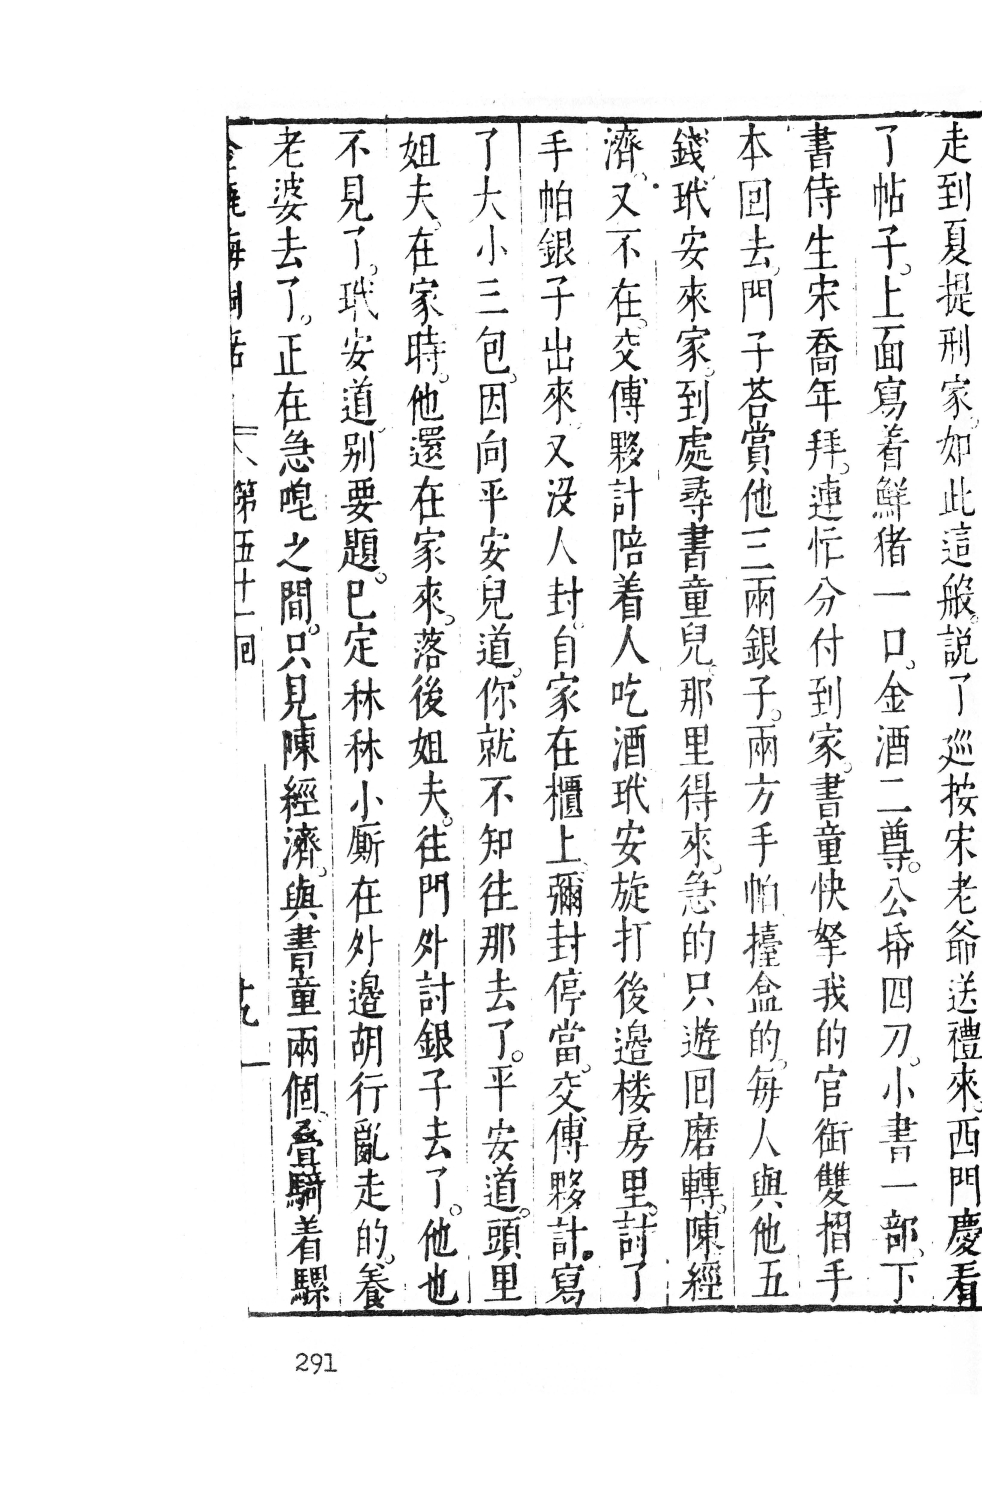 走到夏提刑家。如此這般。説了巡按宋老爺送禮來。西門慶看
了帖子。上面寫着鮮猪一口。金酒二尊。公帋四刀。小書一部。下
書侍生宋喬年拜。連忙分付到家。書童快拏我的官銜雙摺手
本回去。門子荅賞他三兩銀子。兩方手帕。擡盒的。每人與他五
錢。玳安來家。到處尋書童兒。那里得來。急的只遊回磨轉。陳經
濟。又不在。交傅夥計陪着人吃酒。玳安旋打後邊楼房里。討了
手帕銀子出來。又没人封。自家在櫃上。彌封停當。交傅夥計。寫
了大小三包。因向平安兒道。你就不知往那去了。平安道。頭里
姐夫。在家時。他還在家來。落後姐夫。往門外討銀子去了。他也
不見了。玳安道。别要題。已定秫秫小厮在外邊胡行亂走的。養
老婆去了。正在急𠴨之間。只見陳經濟。與書童兩個。疊騎着騾
金瓶梅詞話 第五十一回 十九
291